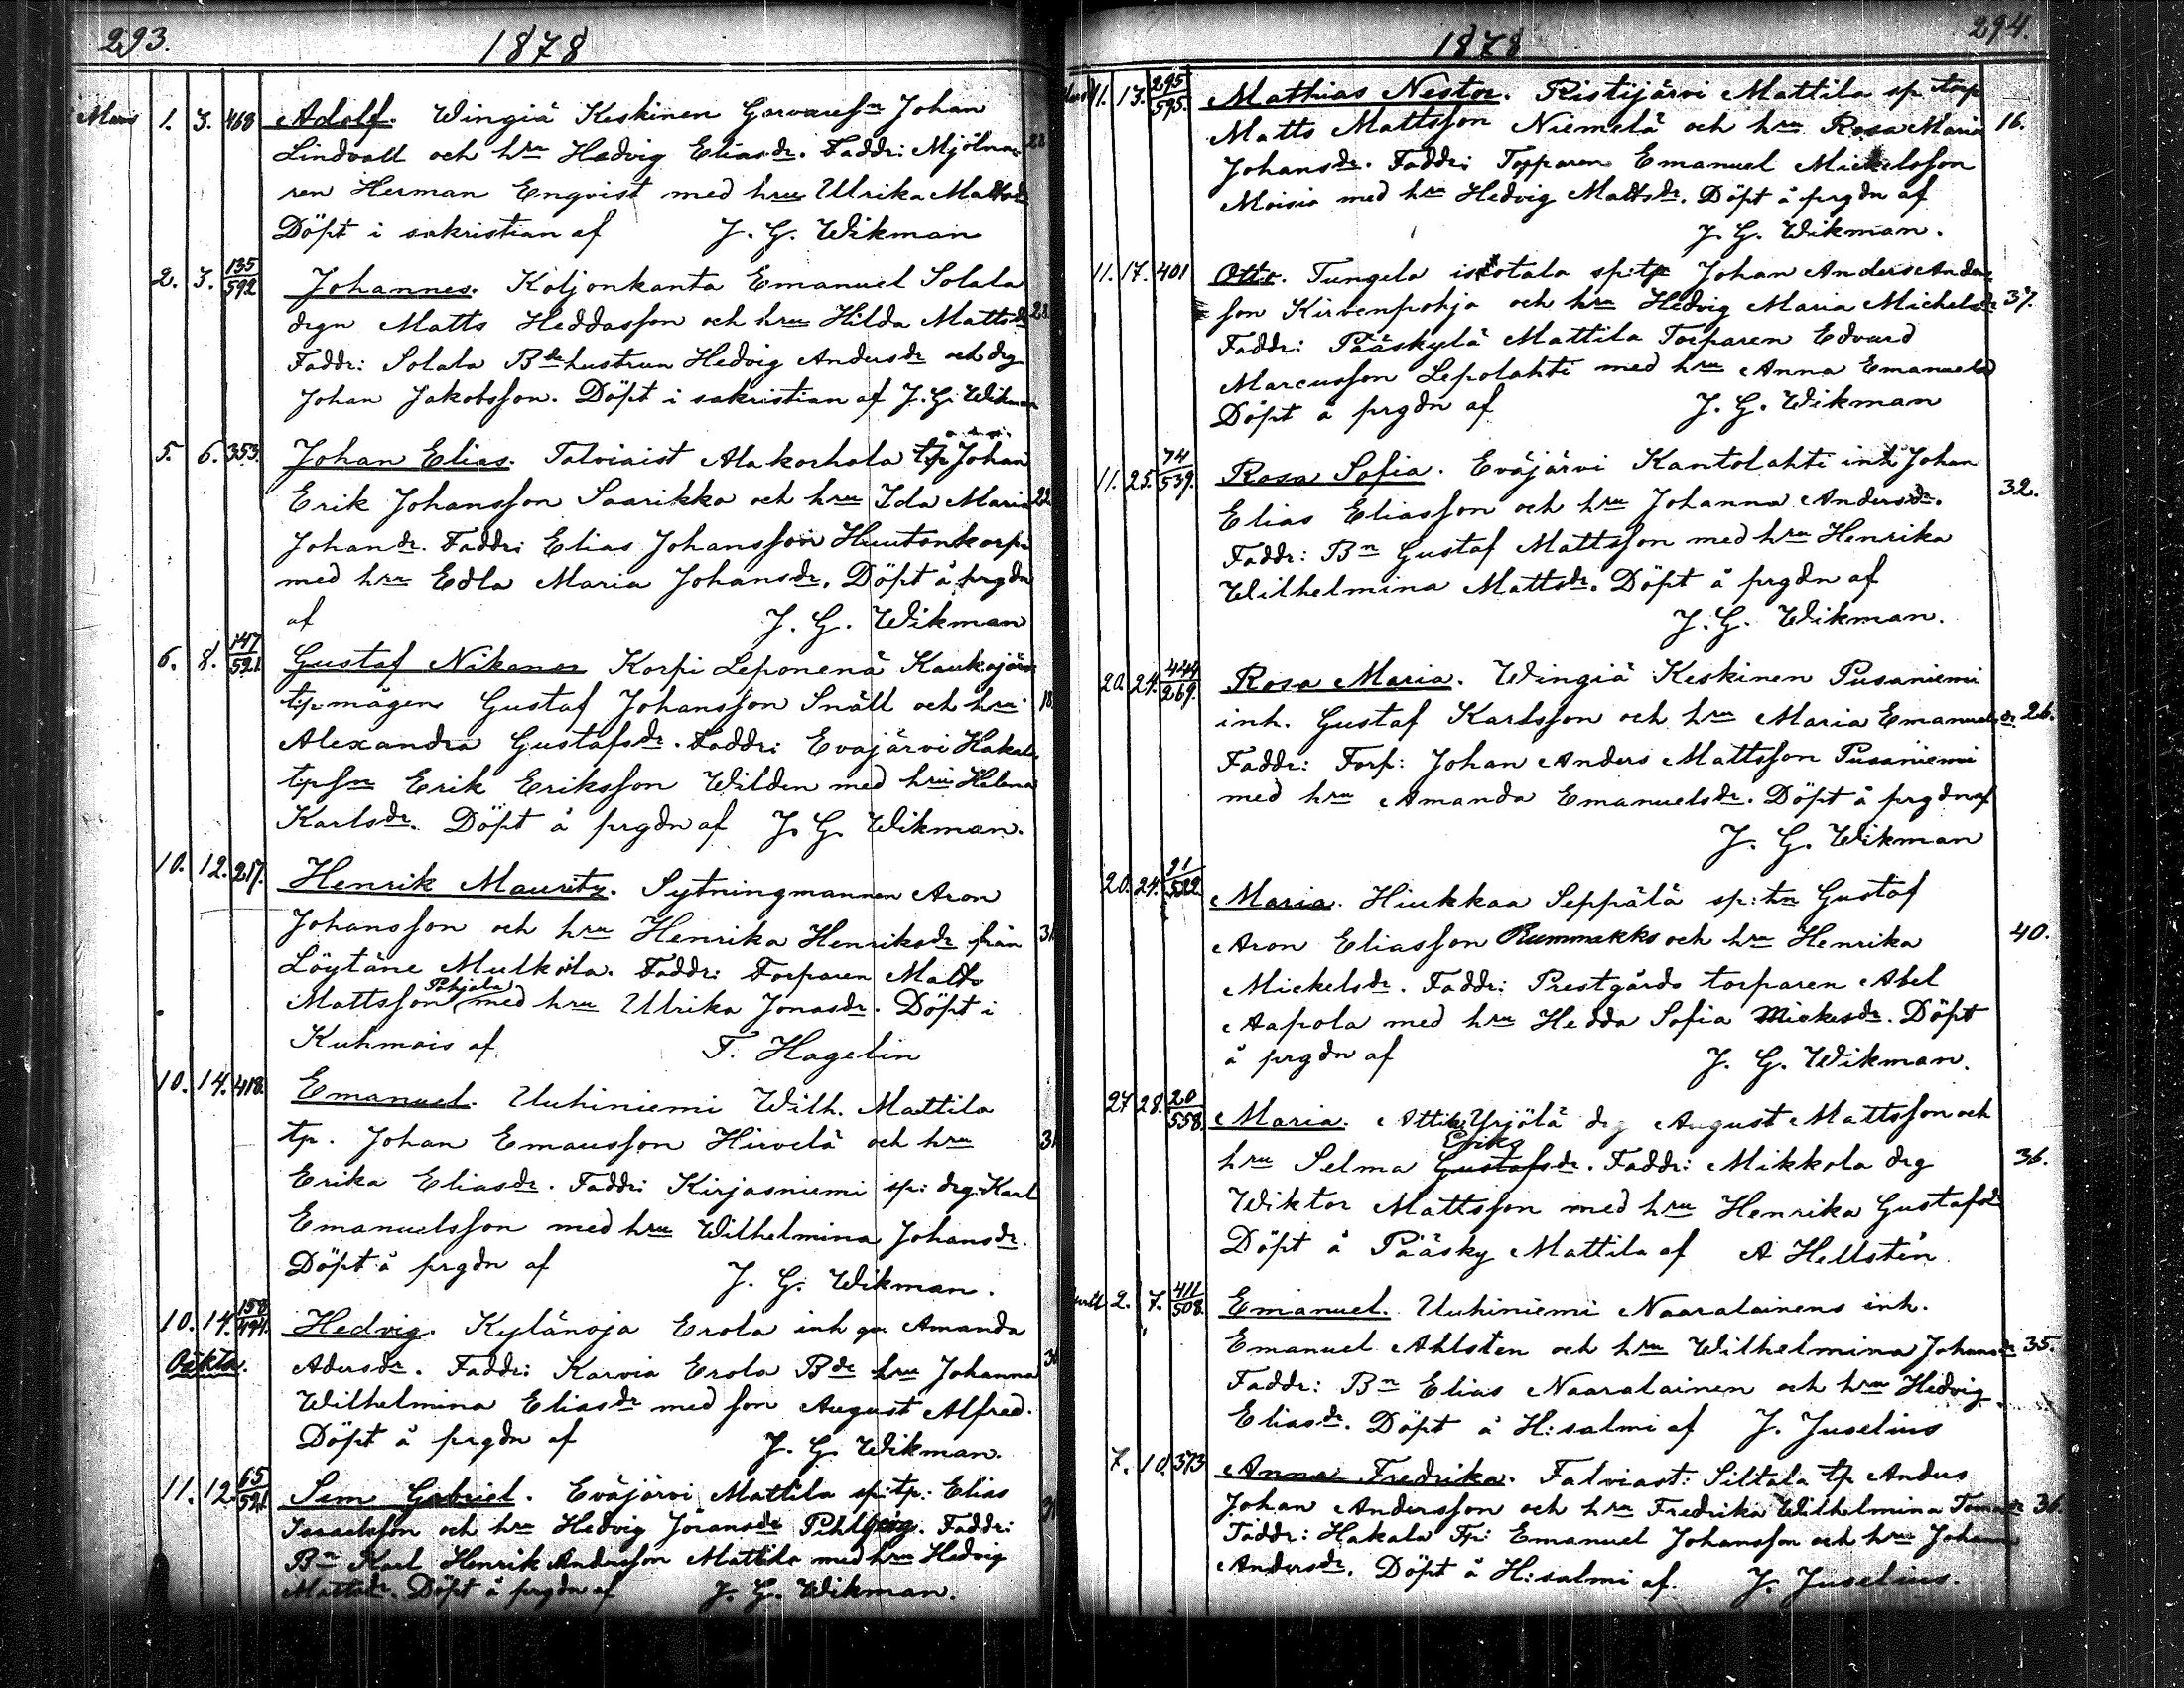 293.
1878
Mars 1. 3. 468 Adolf. Wingiä Keskinen Garvaresn Johan
Lindvall och hru Hedvig Eliasdr. Faddr: Mjölna- 22
ren Herman Enqvist med hru Ulrika Mattsdr
Döpt i sakristian af J. G. Wikman
2. 3. 135/592 Johannes. Koljonkanta Emanuel Solala
drgn Matts Heddasson och hru Hilda Mattsdr 28
Faddr: Solala Bde hustrun Hedvig Andersdr och drg
Johan Jakobsson. Döpt i sakristian af J. G. Wikman
5. 6. 353. Johan Elias. Talviaist Alakorhola tp Johan
Erik Johansson Saarikko och hru Ida Maria 22
Johandr. Faddr: Elias Johansson Huutonkorpi
med hru Edla Maria Johansdr. Döpt å prgdn
af J. G. Wikman
6. 8. 147/521 Gustaf Nikanor Korpi Leponenä Kaukojärvi
tp mågen Gustaf Johansson Snäll och hru 18.
Alexandra Gustafsdr. Faddr: Evajärvi Hakala
tpsn Erik Eriksson Wilden med hru Helena
Karlsdr. Döpt å prgdn af J. G. Wikman.
10. 12. 217. Henrik Mauritz. Sytningmannen Aron
Johansson och hru Henrika Henriksdr från 31
Löytäne Mulkoila. Faddr: Torparen Matts
Mattsson Pohjola med hru Ulrika Jonasdr. Döpt i
Kuhmois af F. Hagelin
10. 14. 418. Emanuel. Uuhiniemi Wilh. Mattila
tp. Johan Emausson Hirvelä och hru 31
Erika Eliasdr. Faddr: Kirjasniemi sp: drg: Karl
Emanuelsson med hru Wilhelmina Johansdr.
Döpt å prgdn af J. G. Wikman.
10. 14. 158/494. Hedvig. Kylänoja Erola inh qv. Amanda
Oäkta. Adersdr. Faddr: Karvia Erola Bde hru Johanna
Wilhelmina Eliasdr med son August Alfred.
Döpt å prgdn af J. G. Wikman.
11. 12. 65/521 Sem Gabriel. Eväjärvi Mattila sp: tp: Elias
Isaacksson och hru Hedvig Joransdr. Faddr: 31
Bn Karl Henrik Andersson Mattila med hru Hedvig
Mattsdr. Döpt å prgdn af J. G. Wikman.
294.
1878
Mars 11. 13. 295/595. Mathias Nestor. Ristijärvi Mattila sp. torp
Matts Mattsson Niemelä och hru Rosa Maria 16.
Johansdr. Faddr: Torparen Emanuel Mickelsson
Moisio med hru Hedvig Mattsdr. Döpt å prgdn af
J. G. Wikman.
11. 17. 401 Otto. Tungela isotala sp: tp Johan Anders Anders
son Kirvenpohja och hru Hedvig Maria Michelsdr 37.
Faddr: Pääskylä Mattila Torparen Edvard
Marcusson Lepolahti med hru Anna Emanuelsd
Döpt å prgdn af J. G. Wikman
11. 25. 74/539. Rosa Sofia. Eväjärvi Kantolahti inh Johan
Elias Eliasson och hru Johanna Andersdr. 32.
Faddr: Bn Gustaf Mattsson med hru Henrika
Wilhelmina Mattsdr. Döpt å prgdn af
J. G. Wikman.
20. 24. 444/269. Rosa Maria. Wingiä Keskinen Pusaniemi
inh. Gustaf Karlsson och hru Maria Emanuelsdr 26.
Faddr: Torp: Johan Anders Mattsson Pusaniemi
med hru Amanda Emanuelsdr. Döpt å prgdn af
J. G. Wikman
20. 24. 91/522 Maria. Hiukkaa Seppälä sp: tn Gustaf
Aron Eliasson Rummakko och hru Henrika 40.
Mickelsdr. Faddr: Prestgårds torparen Abel
Aapola med hru Hedda Sofia Mickesdr. Döpt
å prgdn af J. G. Wikman.
27 28. 20/558. Maria. Attila Yrjölä drg August Mattsson och
hru Selma Eriks Gustafsdr. Faddr: Mikkola drg 36.
Wiktor Mattsson med hru Henrika Gustafsdr
Döpt å Pääsky Mattila af A Hellstén
2. 7. 411/508. Emanuel. Uuhiniemi Naaralainens inh.
Emanuel Ahlsten och hru Wilhelmina Johansdr 35.
Faddr: Bn Elias Naaralainen och hru Hedvig
Eliasdr. Döpt å H:salmi af J. Juselius
7. 10. 373 Anna Fredrika. Talviast: Siltala tp Anders
Johan Andersson och hru Fredrika Wilhelmina Tomasdr 36.
Faddr: Hakala Tp: Emanuel Johansson och hru Johanna
Andersdr. Döpt å H:salmi af. J. Juselius.